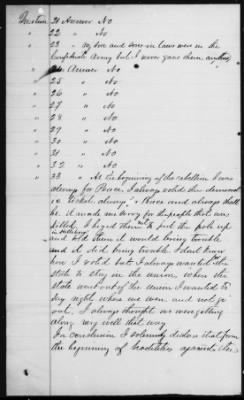 Question 21 Answer No
" 22 " No
" 23 " My son and sons in laws were in the
Confederate Army but I never gave them anything
" 24 Answer No
" 25 " No
" 26 " No
" 27 " No
" 28 " No
" 29 " No
" 30 " No
" 31 " No
" 32 " No
" 33 " At the beginning of the rebellion I was
always for Peace. I always voted the democrat
ic ticket always & Peace and always shall
be. it made me sorry for the people that was
killed. I beged them to put the pole up
in
and told them it would bring trouble
and it did bring trouble I dont know
how I voted but I always wanted the
state to stay in the union, when the
state went out of the Union I wanted to
stay right where we were and not go
out. I always thought we were getting
along very well that way
In conclusion I solemnly declare that from
the beginning of hostilities against the